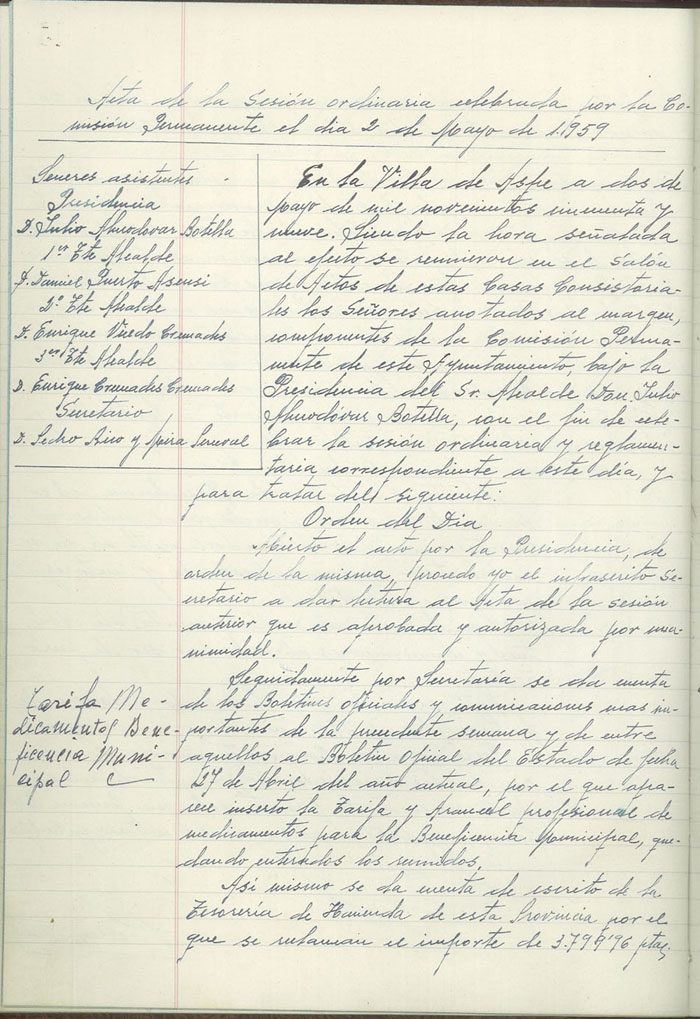 Acta de la Sesión ordinaria celebrada por la Co-
misión Permanente el dia 2 de Mayo de 1.959
Señores asistentes -
Presidencia
D. Julio Almodovar Botella
1er Tte Alcalde
D. Daniel Puerto Asensi
2º Tte Alcalde
D. Enrique Vuedo Cremades
3er Tte Alcalde
D. Enrique Cremades Cremades
Secretario
D. Pedro y Mira
En la Villa de Aspe a dos de
Mayo de mil novecientos cincuenta y
nueve. Siendo la hora señalada
al efecto se reunieron en el Salón
de Actos de estas Casas Consistoria-
les los Señores anotados al margen,
componentes de la Comisión Perma-
nente de este Ayuntamiento, bajo la
Presidencia del Sr. Alcalde Don Julio
Almodóvar Botella, con el fin de cele-
brar la sesión ordinaria y reglamen-
taria correspondiente a este día, y
para tratar del siguiente:
Orden del Dia
Abierto el acto por la Presidencia, de
orden de la misma, procedo yo el infrascrito Se-
cretario a dar lectura al Acta de la sesión
anterior que es aprobada y autorizada por una-
nimidad.
Tarifa Me-
dicamentos Bene-
ficencia Muni-
cipal
Seguidamente por Secretaría se da cuenta
de los Boletines oficiales y comunicaciones mas im-
portantes de la precedente semana y de entre
aquellos al Boletin Oficial del Estado de fecha
27 de Abril del año actual, por el que apa-
rece inserto la Tarifa y Arancel profesional de
medicamentos para la Beneficencia Municipal, que-
dando enterados los reunidos.
Asi mismo se da cuenta de escrito de la
Tesorería de Hacienda de esta Provincia por el
que se reclaman el importe de 3.799'96 ptas,